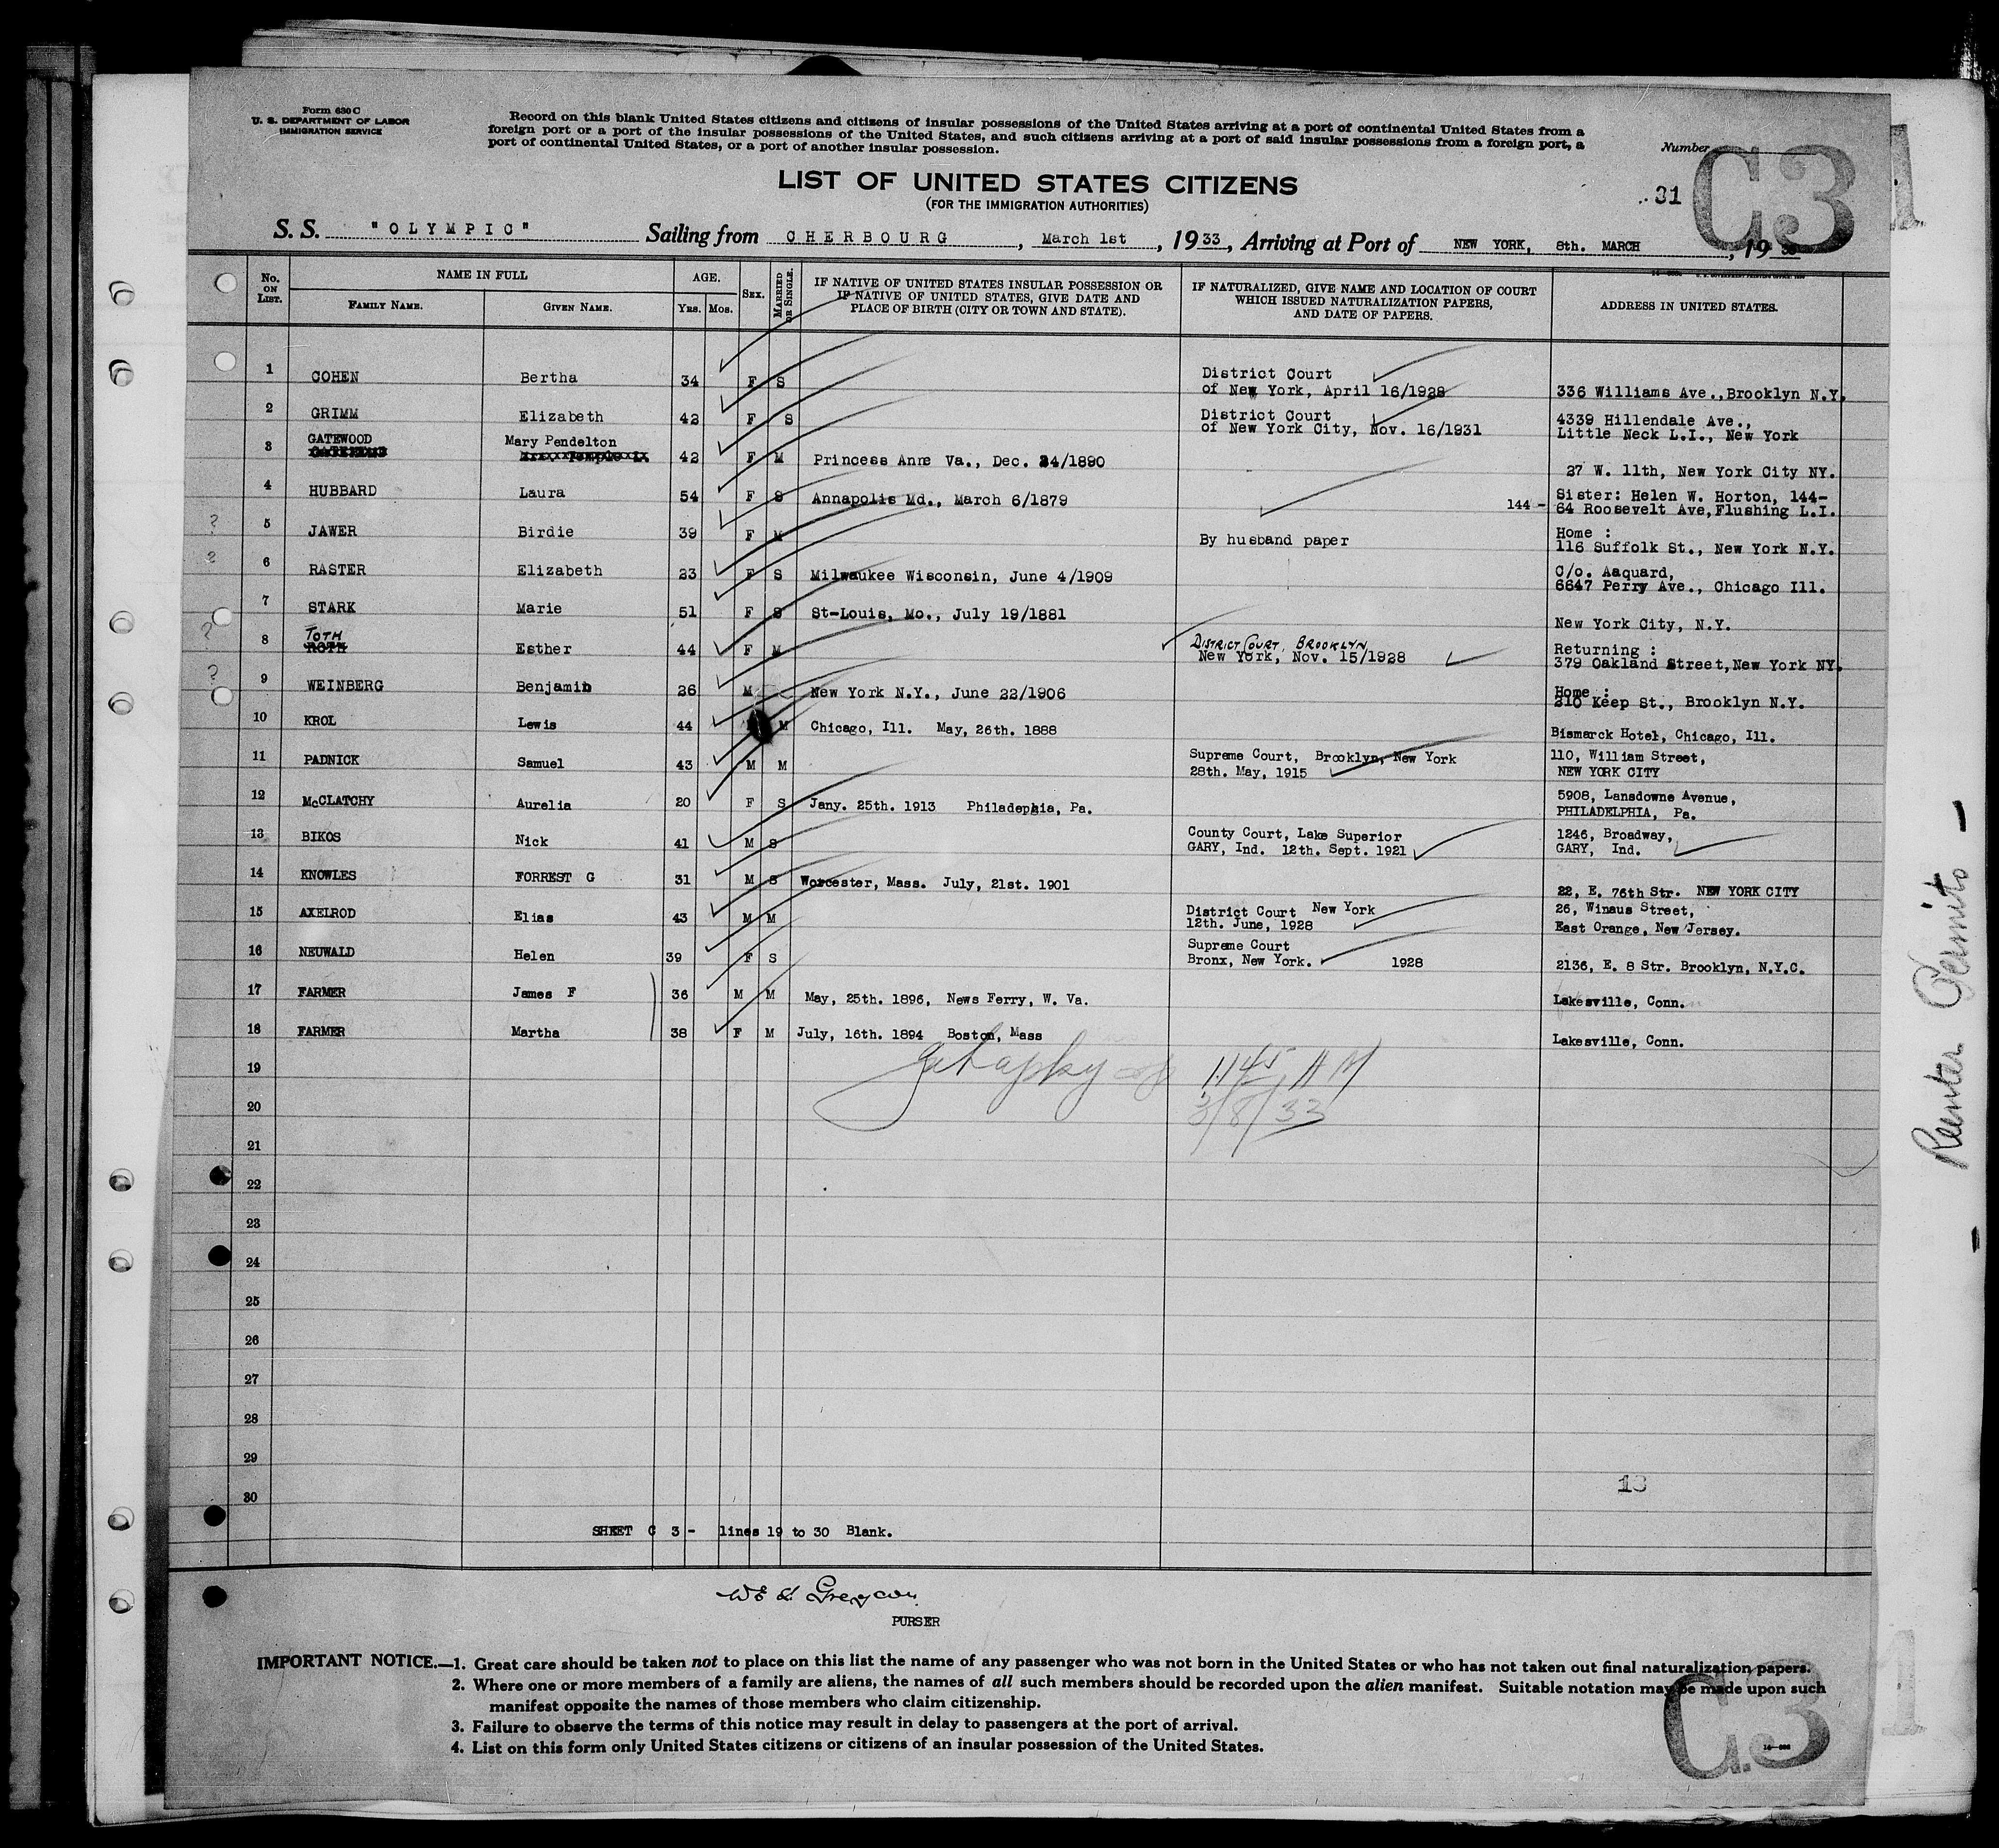 Form 630 C
U. S. DEPARTMENT OF LABOR
IMMIGRATION SERVICE
Record on this blank United States citizens and citizens of insular possessions of the United States arriving at a port of continental United States from a
foreign port or a port of the insular possessions of the United States, and such citizens arriving at a port of said insular possessions from a foreign port, a
port of continental United States, or a port of another insular possession.
Number
C3
31
LIST OF UNITED STATES CITIZENS
(FOR THE IMMIGRATION AUTHORITIES)
S. S. "OLYMPIC" Sailing from CHERBOURG, March 1st, 1933, Arriving at Port of NEW YORK, 8th. MARCH, 19
No. ON LIST. NAME IN FULL AGE. SEX. MARRIED OR SINGLE. IF NATIVE OF UNITED STATES INSULAR POSSESSION OR IF NATIVE OF UNITED STATES, GIVE DATE AND PLACE OF BIRTH (CITY OR TOWN AND STATE). IF NATURALIZED, GIVE NAME AND LOCATION OF COURT WHICH ISSUED NATURALIZATION PAPERS, AND DATE OF PAPERS. ADDRESS IN UNITED STATES.
FAMILY NAME. GIVEN NAME. YRS. MOS.
1 COHEN Bertha 34 F S District Court of New York, April 16/1928 336 Williams Ave.,Brooklyn N.Y.
2 GRIMM Elizabeth 42 F S District Court of New York City, Nov. 16/1931 4339 Hillendale Ave., Little Neck L.I., New York
3 GATEWOOD Mary Pendelton 42 F M Princess Anne Va., Dec. 24/1890 27 W. 11th, New York City NY.
4 HUBBARD Laura 54 F S Annapolis Md., March 6/1879 144 - Sister: Helen W. Horton, 144- 64 Roosevelt Ave,Flushing L.I.
? 5 JAWER Birdie 39 F M By husband paper Home : 116 Suffolk St., New York N.Y.
? 6 RASTER Elizabeth 23 F S Milwaukee Wisconsin, June 4/1909 C/o. Aaquard, 6647 Perry Ave., Chicago Ill.
7 STARK Marie 51 F S St-Louis, Mo., July 19/1881 New York City, N.Y.
? 8 TOTH ROTH Esther 44 F M DISTRICT COURT, BROOKLYN New York, Nov. 15/1928 Returning : 379 Oakland Street,New York NY.
? 9 WEINBERG Benjamin 26 M New York N.Y., June 22/1906 Home : 210 Keep St., Brooklyn N.Y.
10 KROL Lewis 44 M Chicago, Ill. May, 26th. 1888 Bismarck Hotel, Chicago, Ill.
11 PADNICK Samuel 43 M M Supreme Court, Brooklyn, New York 28th. May, 1915 110, William Street, NEW YORK CITY
12 McCLATCHY Aurelia 20 F S Jany. 25th. 1913 Philadephia, Pa. 5908, Lansdowne Avenue, PHILADELPHIA, Pa.
13 BIKOS Nick 41 M S County Court, Lake Superior GARY, Ind. 12th. Sept. 1921 1246, Broadway, GARY, Ind.
14 KNOWLES FORREST G 31 M S Worcester, Mass. July, 21st. 1901 22, E. 76th Str. NEW YORK CITY
15 AXELROD Elias 43 M M District Court New York 12th. June, 1928 26, Winaus Street, East Orange, New Jersey.
16 NEUWALD Helen 39 F S Supreme Court Bronx, New York. 1928 2136, E. 8 Str. Brooklyn, N.Y.C.
17 FARMER James F 36 M M May, 25th. 1896, News Ferry, W. Va. Lakesville, Conn.
18 FARMER Martha 38 F M July, 16th. 1894 Boston, Mass Lakesville, Conn.
19
11 45 A M
20
3/8/33
21
22
23
24
25
26
27
28
29
30
18
SHEET C 3 - lines 19 to 30 Blank.
PURSER
IMPORTANT NOTICE.—1. Great care should be taken not to place on this list the name of any passenger who was not born in the United States or who has not taken out final naturalization papers.
2. Where one or more members of a family are aliens, the names of all such members should be recorded upon the alien manifest. Suitable notation may be made upon such
manifest opposite the names of those members who claim citizenship.
3. Failure to observe the terms of this notice may result in delay to passengers at the port of arrival.
4. List on this form only United States citizens or citizens of an insular possession of the United States.
C.3